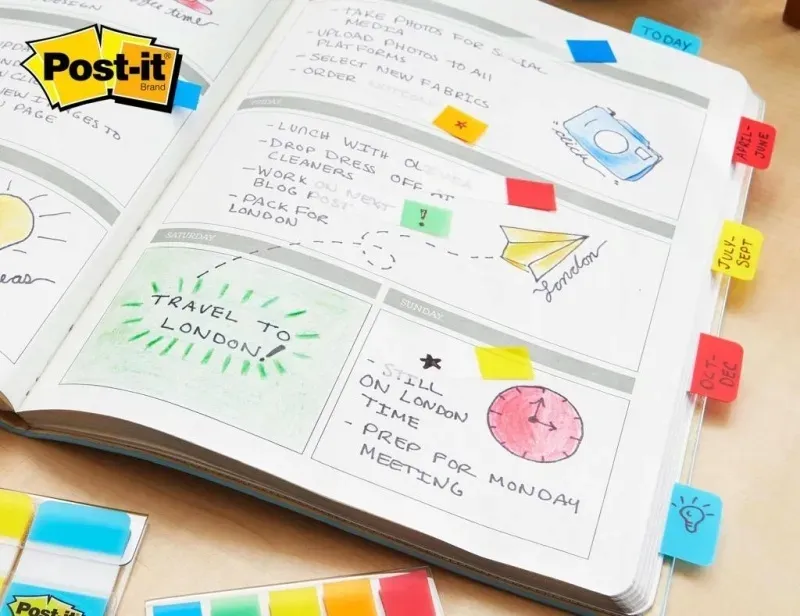 Post-it®
Brand
TODAY
APRIL-
JUNE
JULY-
SEPT
OCT-
DEC
TO
PAGE
- TAKE PHOTOS FOR SOCIAL
MEDIA
- UPLOAD PHOTOS TO ALL
PLATFORMS
- SELECT NEW FABRICS
- ORDER
- LUNCH WITH
- DROP DRESS OFF AT
CLEANERS
- WORK ON NEXT
BLOG POST
- PACK FOR
LONDON
!
London
SATURDAY
TRAVEL TO
LONDON!
SUNDAY
- STILL
ON LONDON
TIME
- PREP FOR MONDAY
MEETING
Post-it